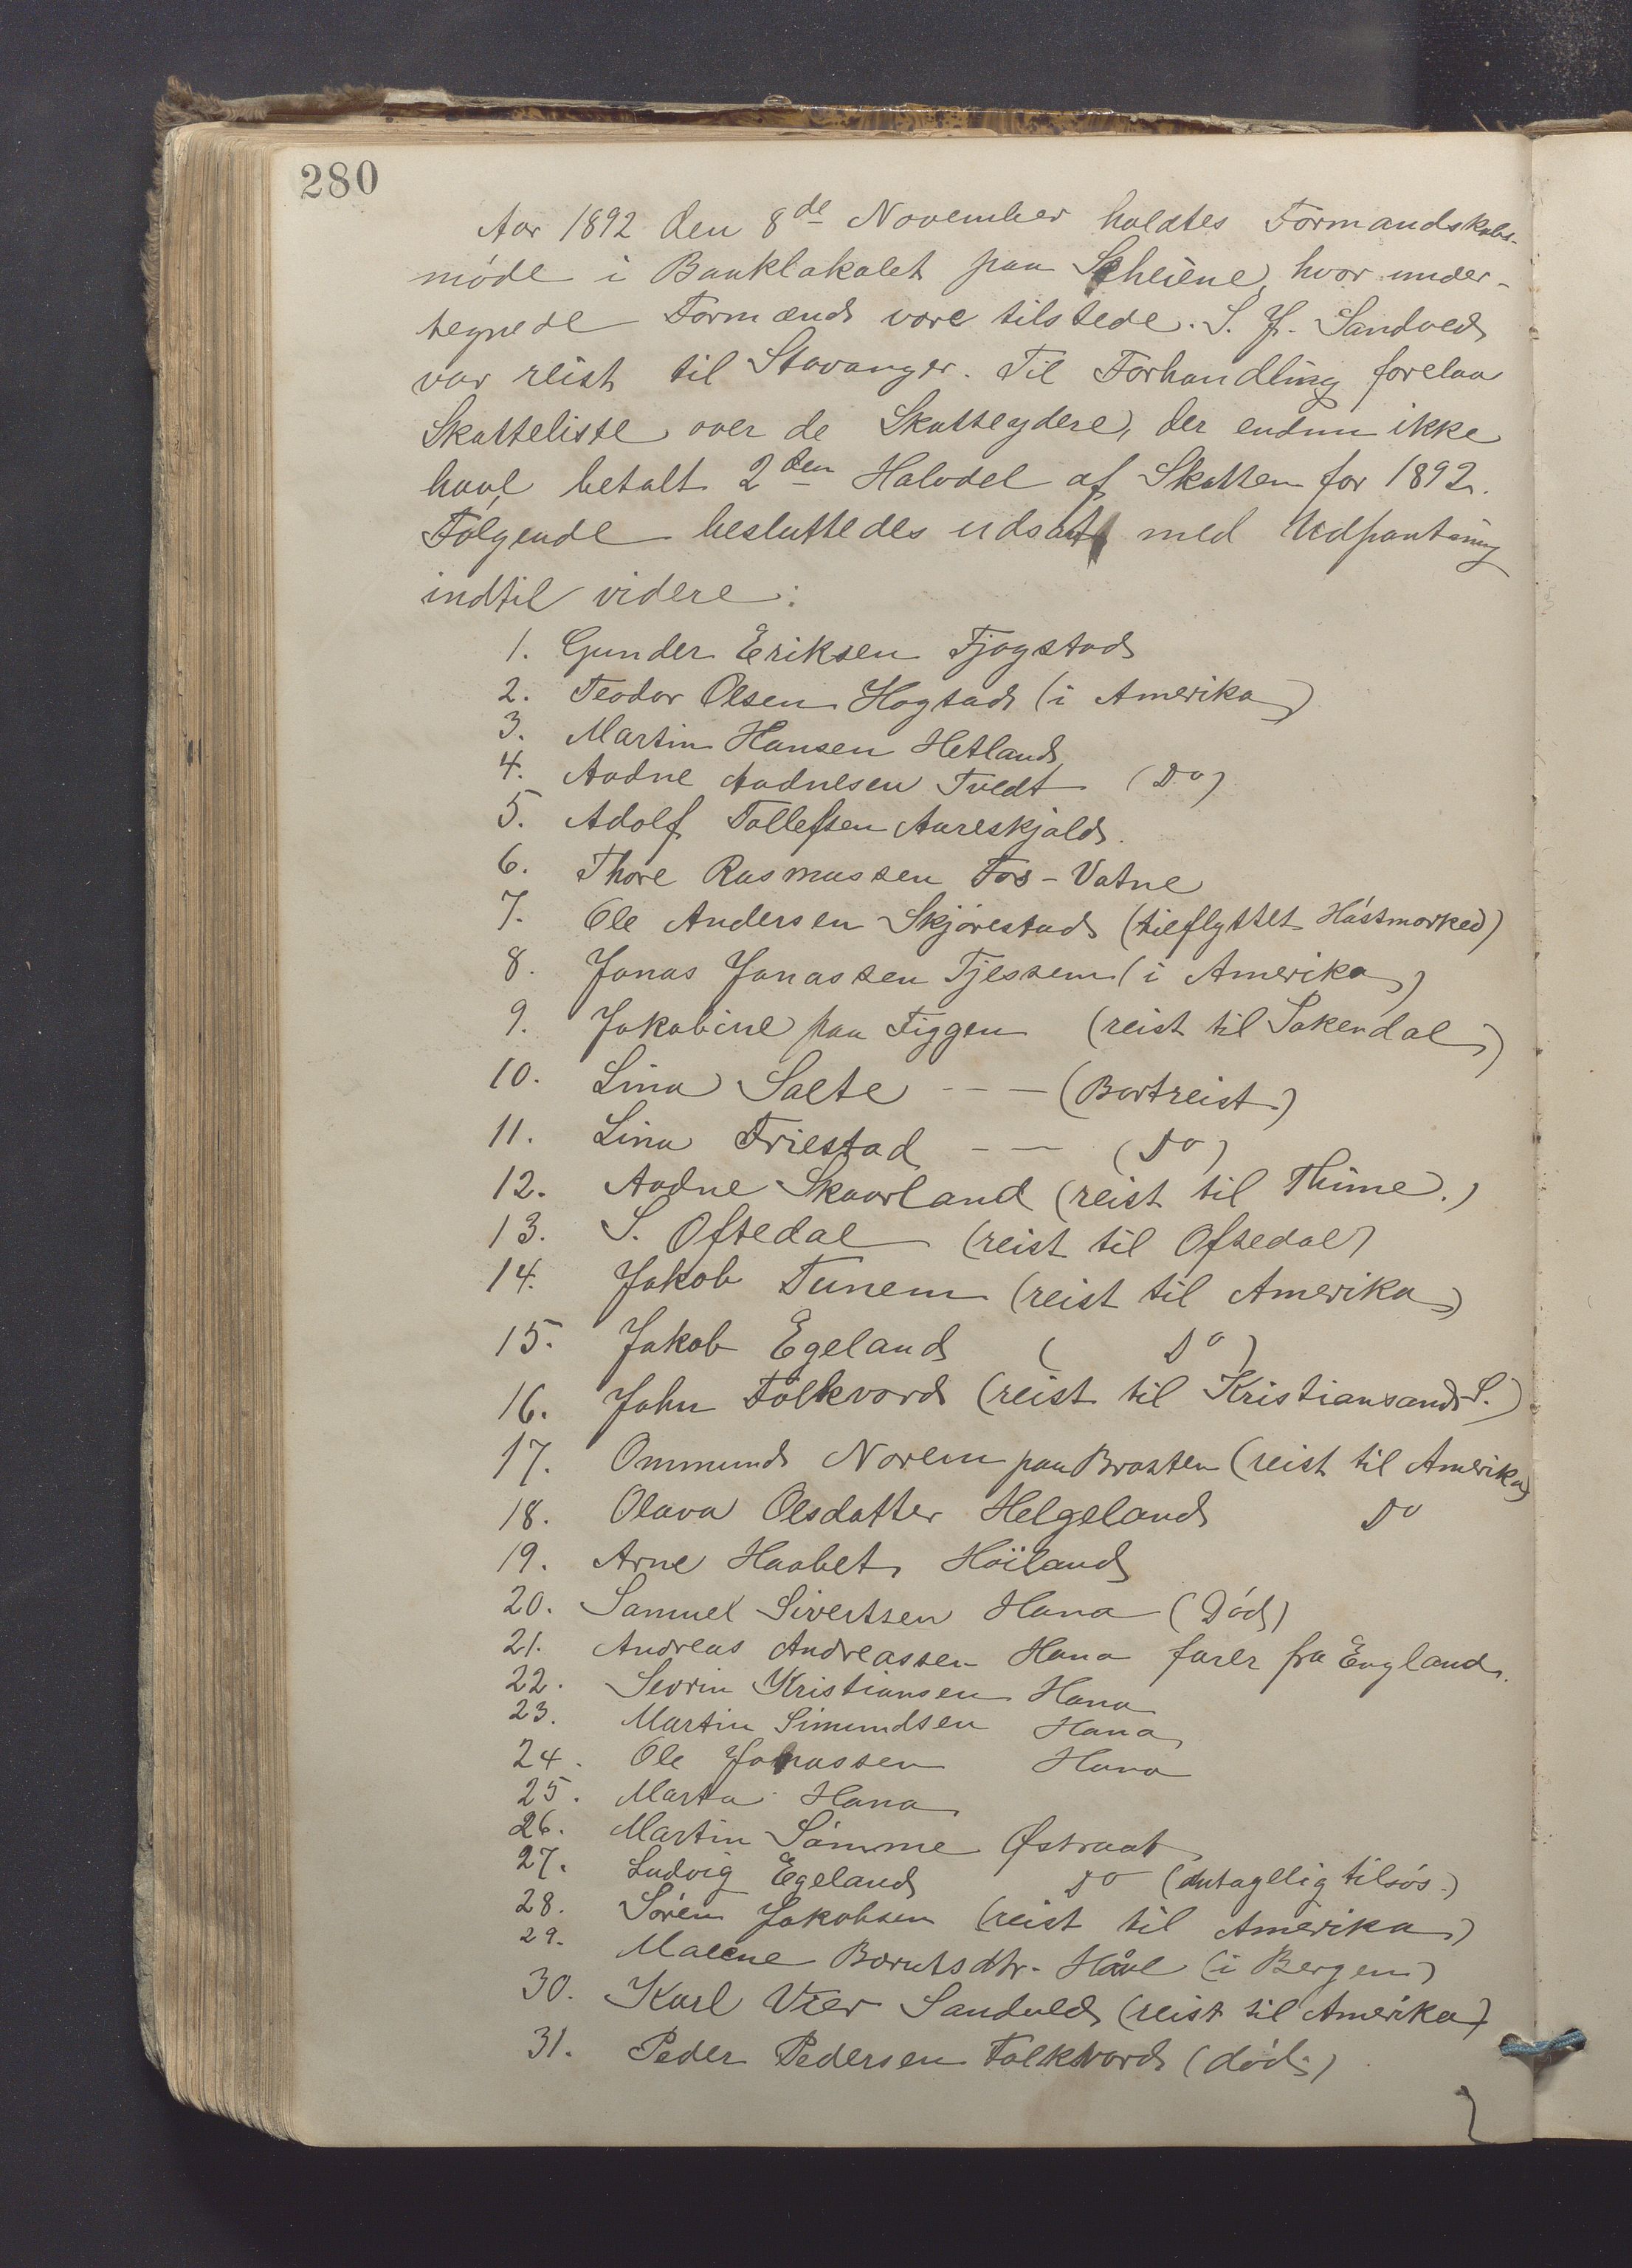 280
Aar 1892 den 8de November holdtes Formandskabs-
møde i Banklokalet paa Skeiene, hvor under-
tegnede Formænd vare tilstede. S. J. Sandved
var reist til Stavanger. Til Forhandling forelaa
Skatteliste over de Skatteydere, der endnu ikke
have betalt 2den Halvdel af Skatten for 1892.
Følgende besluttedes udsat med Udpantning
indtil videre:
1. Gunder Eriksen Fjogstad
2. Teodor Olsen Hogstad (i Amerika)
3. Martin Hansen Hetland
4. Aadne Aadnesen Tvedt (Do)
5. Adolf Tollefsen Aareskjold.
6. Thore Rasmussen Fos-Vatne
7. Ole Andersen Skjørestad (tilflyttet Høstmarked)
8. Jonas Jonassen Tjessem (i Amerika)
9. Jakobine paa Figgen (reist til Sokendal)
10. Lina Salte - - - (Bortreist)
11. Lina Friestad - - (Do)
12. Aadne Skaarland (reist til Thime.)
13. S. Oftedal (reist til Oftedal)
14. Jakob Tunem (reist til Amerika)
15. Jakob Egeland ( Do )
16. John Folkvord (reist til Kristiansand S.)
17. Ommund Norem paa Braaten (reist til Amerika)
18. Olava Olsdatter Helgeland Do
19. Arne Haabet Høiland
20. Samuel Sivertsen Hana (Død)
21. Andreas Andreassen Hana farer fra England.
22. Sevrin Kristiansen Hana
23. Martin Simundsen Hana
24. Ole Jonassen Hana
25. Marta Hana
26. Martin Sømme Østraat
27. Ludvig Egeland Do (antagellig tilsøs.)
28. Søren Jakobsen (reist til Amerika)
29. Malene Borutsdtr. Håve (i Bergen)
30. Karl Vier Sandved (reist til Amerika)
31. Peder Pedersen Folkvord (død)